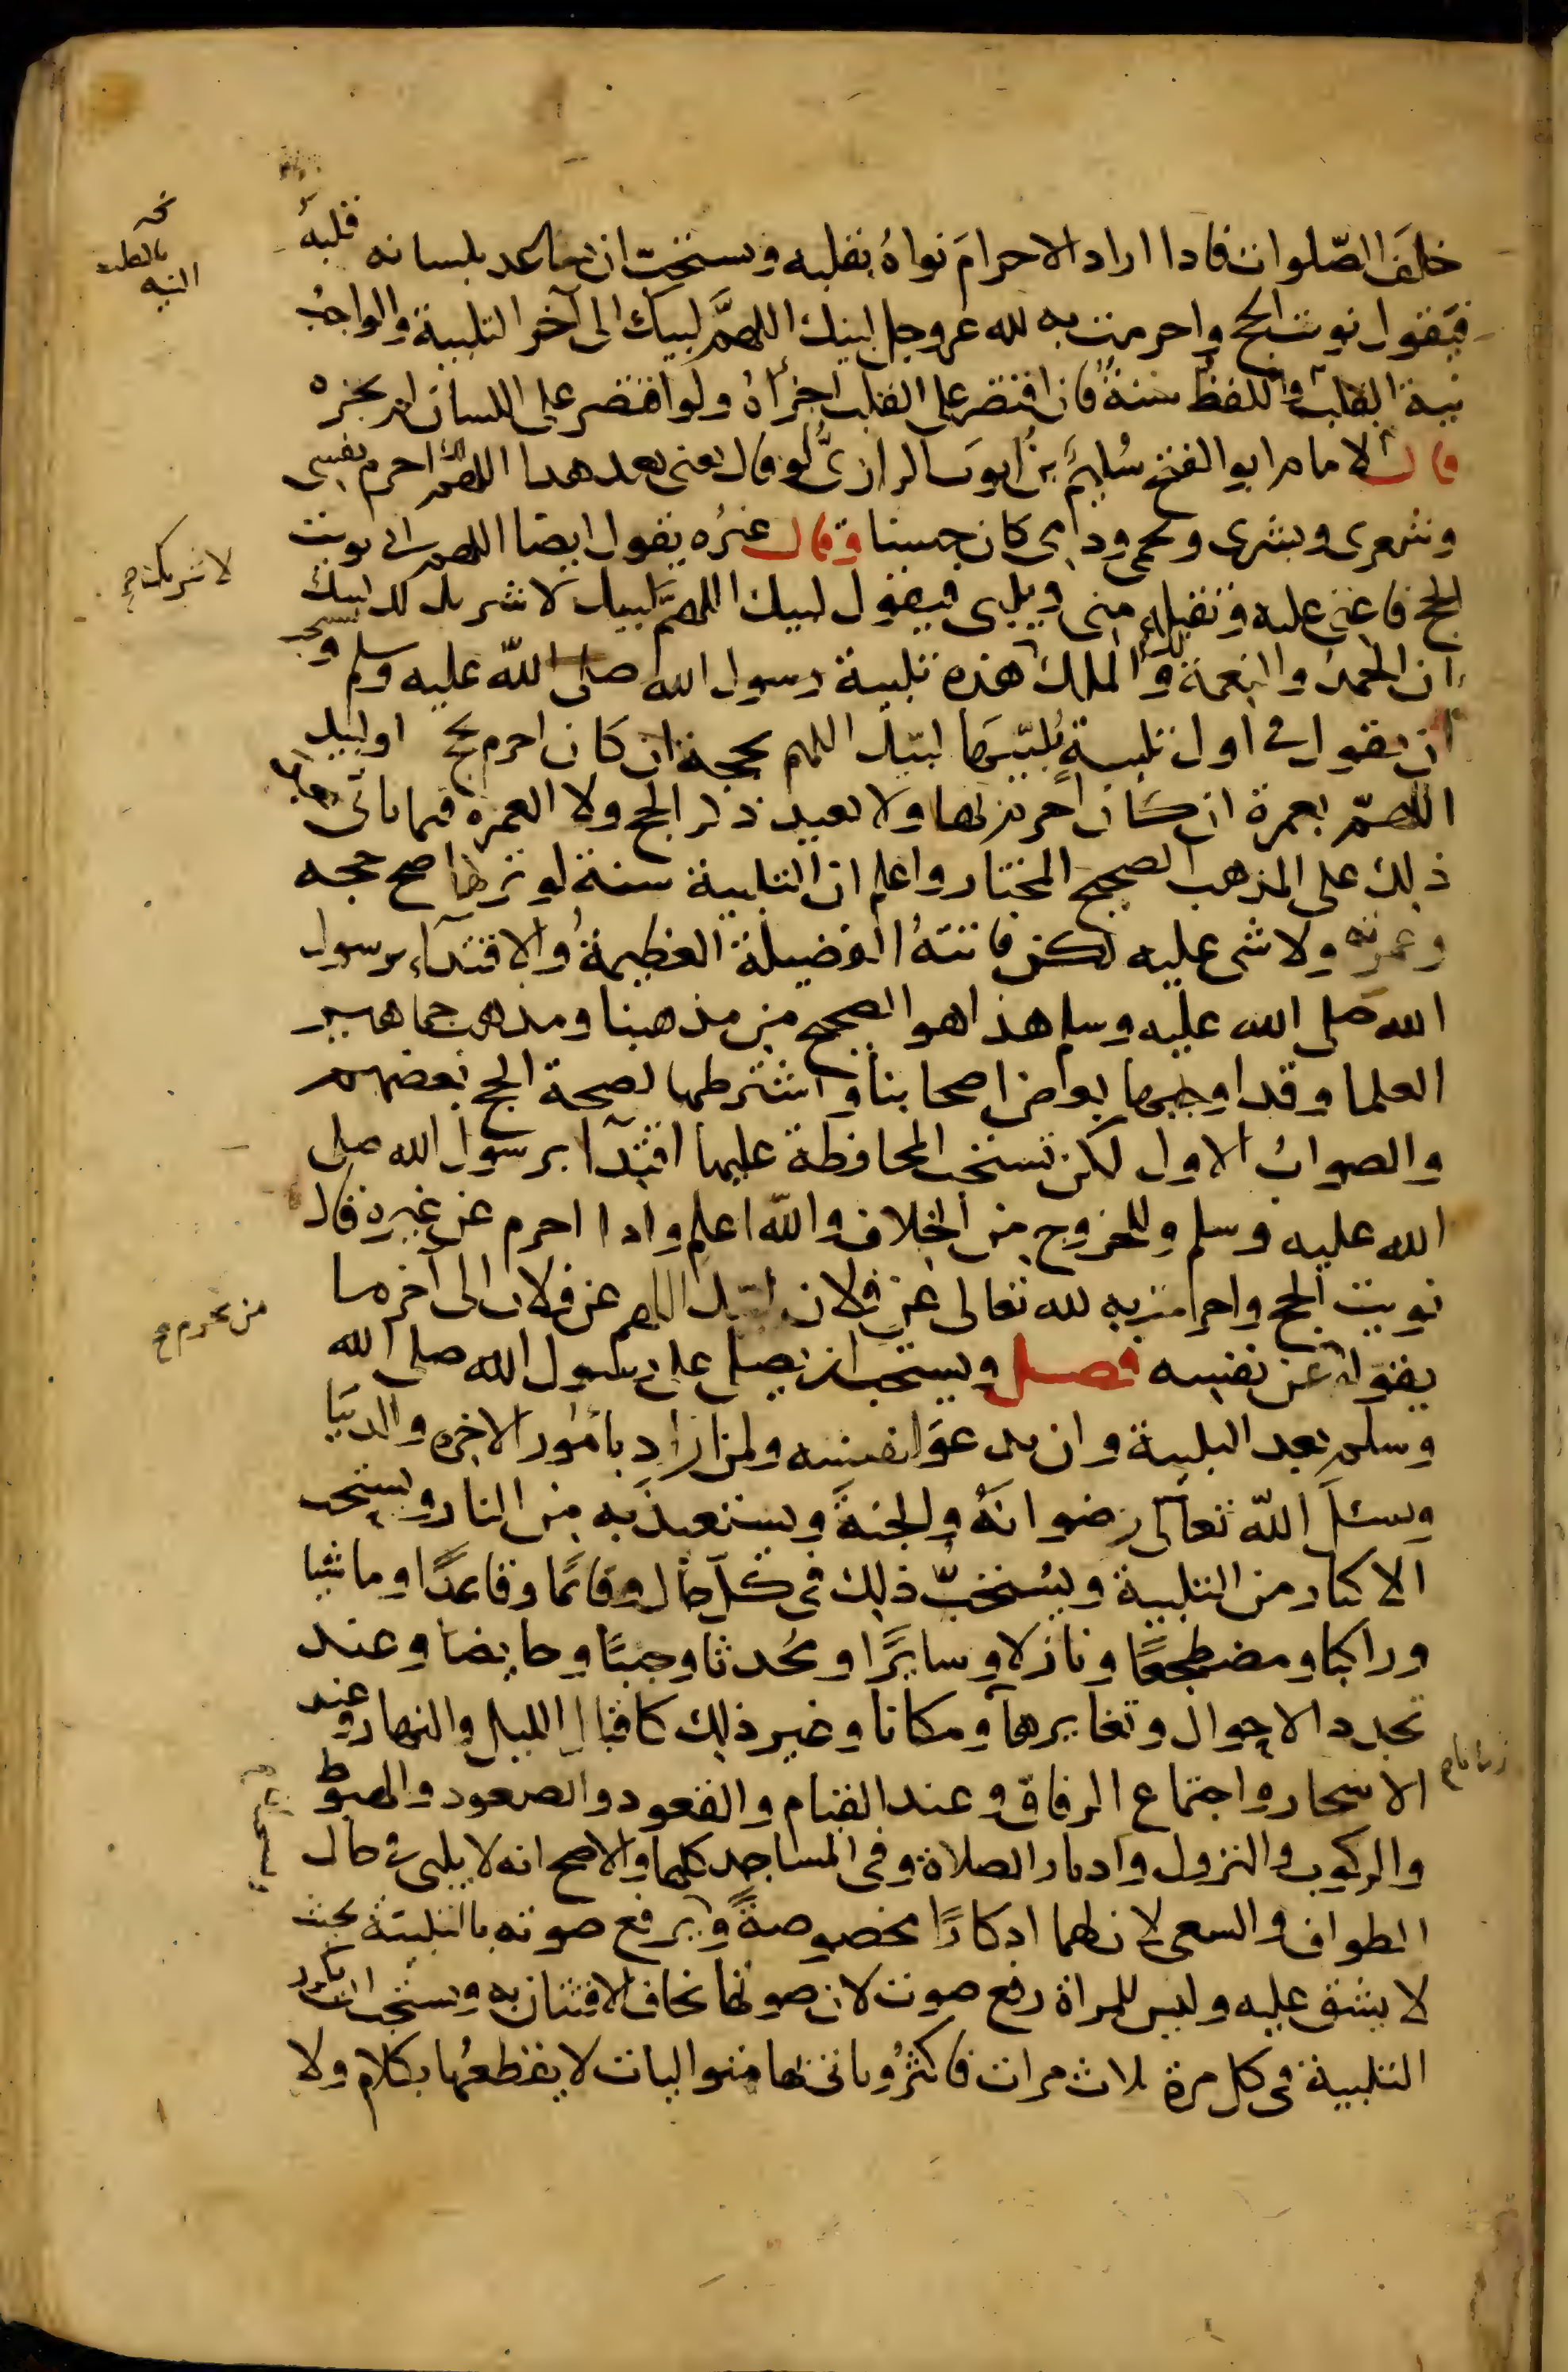 خلفَ الصّلوات فاذا اراد الاحرامَ نواهُ بقلبه ويستحبّ ان يساعد بلسانه قلبهُ
فيقول نويت الحج واحرمت به لله عز وجل لبيك اللهمَّ لبيك الى آخر التلبية والواجبُ
نية القلب واللفظ سنةُ فان اقتصر على القلب اجزأهُ ولو اقتصر على اللسان لم يجزه
قال الامام ابو الفتح سُليمُ بنُ ايوب الرازىُّ لو قال يعنى بعد هذا اللهمَّ لك احرم نفسى
وشعرى وبشرى ولحمى ودمى كان حسنا وقال غيرُه يقول ايضا اللهم انى نويت
الحج فاعنى عليه وتقبله منى ويلبى فيقول لبيك اللهمَّ لبيك لا شريك لك لبيك
ان الحمد والنعمة لك والملك هذه تلبية رسول الله صلى الله عليه وسلم ويستحب
ان يقول فى اول تلبيةٍ يُلبّيها لبّيك اللهم بحجة ان كان احرم بحج او لبيك
اللهمّ بعمرة ان كان احرم بها ولا يعيد ذكر الحج ولا العمره فيما ياتى به بعد
ذلك على المذهب الصحيح المختار واعلم ان التلبية سنة لو تركها صح حجه
وعمرته ولا شى عليه لكن فاتتهُ الفضيلة العظيمةُ والاقتدآء برسول
الله صلى الله عليه وسلم هذا هو الصحيح من مذهبنا ومذهب جماهير
العلما وقد اوجبها بعض اصحابنا واشترطها لصحة الحج بعضهم
والصوابُ الاول لكن تستحب المحافظة عليها اقتدآا برسول الله صلى
الله عليه وسلم وللخروج من الخلاف والله اعلم واذا احرم عن غيره قال
نويت الحج واحرمت به لله تعالى عن فلان لبّيك اللهم عن فلان الى آخر ما
يقوله من يحرم عن نفسه فصل ويستحب ان يصلى على رسول الله صلى الله
وسلم بعد التلبية وان يدعوَ لنفسه ولمن اراد بامُور الاخره والدنيَا
ويسئلَ اللّه تعالى رضوانَهُ والجنةَ ويستعيذَ به من النار ويستحب
الاكثار من التلبية ويُستحَبّ ذلك فى كل حال قائمًا وقاعدًا وماشيا
وراكبا ومضطجعًا ونازلا وسايرًا ومُحدثا وجنبًا وحايضا وعند
تجدد الاحوال وتغايرها زمانا ومكانا وغير ذلك كاقبال الليل والنهار وعند
الاسحار واجتماع الرفاق وعند القيام والقعود والصعود والهبوط
والركوب والنزول وادبار الصلاة وفى المساجد كلها والاصح انه لا يلبى فى حال
الطواف والسعى لان لهما اذكارًا مخصوصةً ويرفع صوته بالتلبية بحيث
لا يشق عليه وليس للمراة رفع صوت لان صوتها يخاف الافتتان به ويستحب ان يكرر
التلبية فى كل مرة ثلاث مرات فاكثرُ وياتى بها متواليات لا يقطعُها بكلام ولا
لا شريك
من يحرم
زمانا